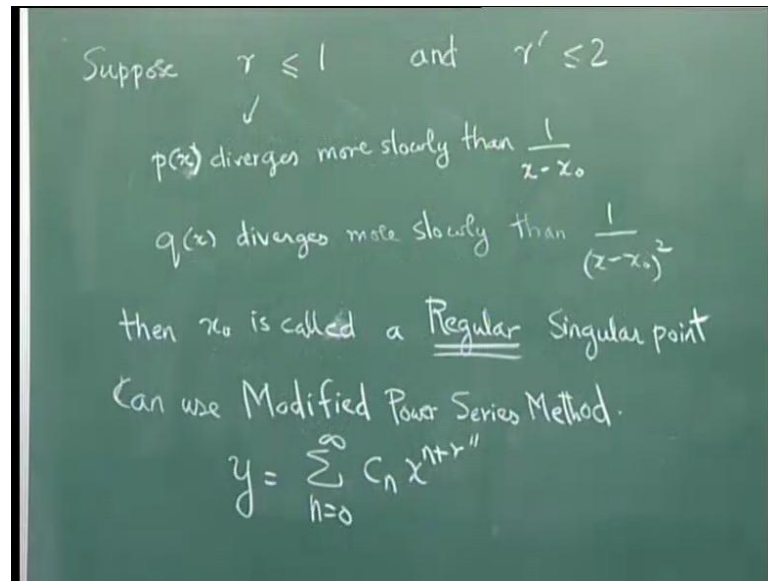 Suppose r ≤ 1 and r' ≤ 2
p(x) diverges more slowly than 1/(x-x₀)
q(x) diverges more slowly than 1/(x-x₀)²
then x₀ is called a Regular Singular point
Can use Modified Power Series Method.
y = ∑_{n=0}^{∞} Cₙ x^{n+r''}